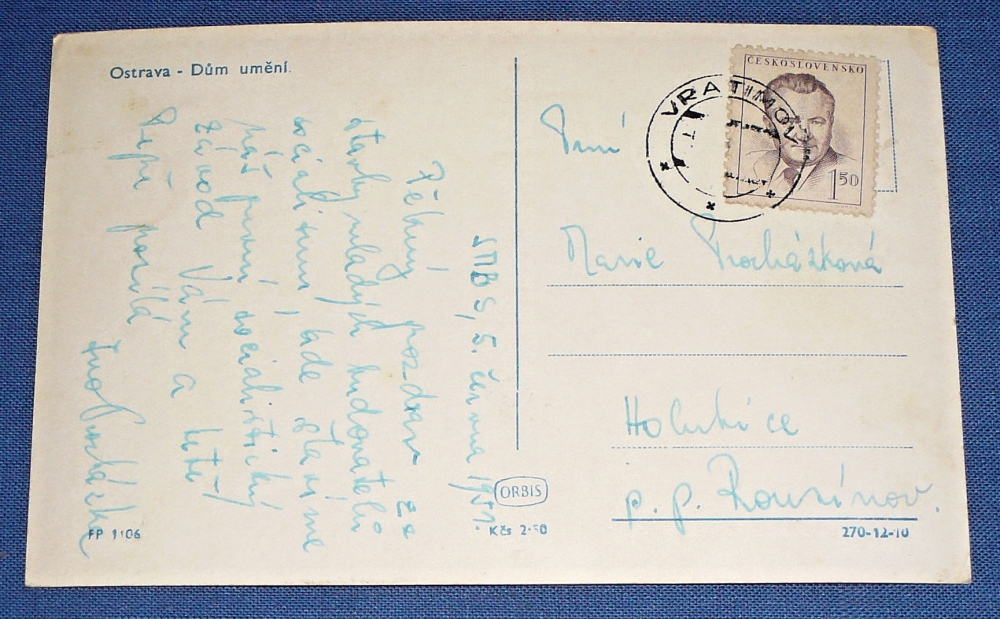 Ostrava - Dům umění.
SMBS, 5. června 1951.
Pěkný pozdrav ze
stavby mladých budovatelů
socialismu, kde stavíme
náš první socialistický
závod Vám a
Pepi posílá
Procházka
ČESKOSLOVENSKO
1 50
VRATIMOV
Paní
Marie Procházková
Holubice
p. p. Rousínov.
ORBIS
FP 1106
Kčs 2·50
270-12-10